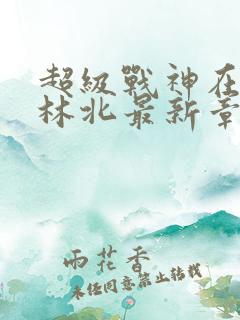 超級戰神在
林北最新章
雨花香
未经同意禁止转载